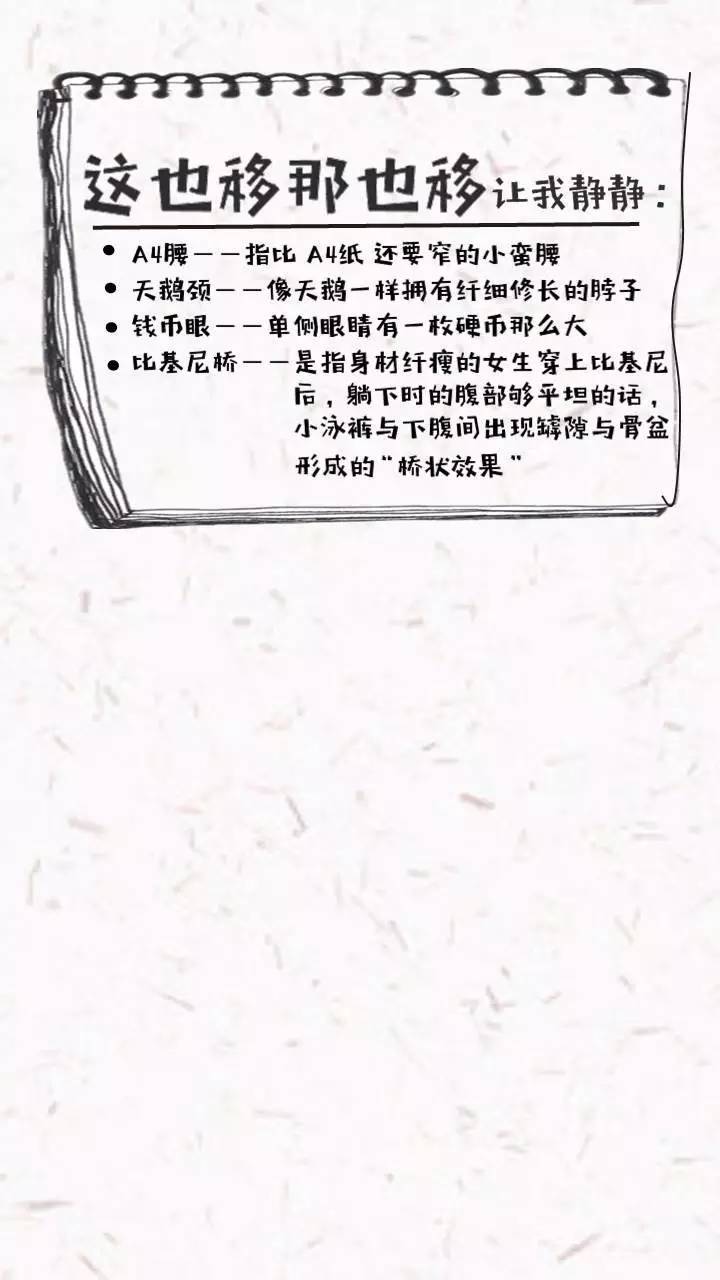 这也移那也移让我静静：
• A4腰——指比 A4纸 还要窄的小蛮腰
• 天鹅颈——像天鹅一样拥有纤细修长的脖子
• 钱币眼——单侧眼睛有一枚硬币那么大
• 比基尼桥——是指身材纤瘦的女生穿上比基尼
后，躺下时的腹部够平坦的话，
小泳裤与下腹间出现罅隙与骨盆
形成的“桥状效果”